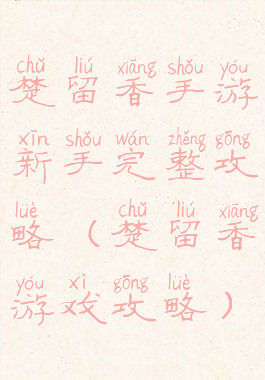 chǔ liú xiāng shǒu yóu
楚留香手游
xīn shǒu wán zhěng gōng
新手完整攻
lüè chǔ liú xiāng
略（楚留香
yóu xì gōng lüè
游戏攻略）